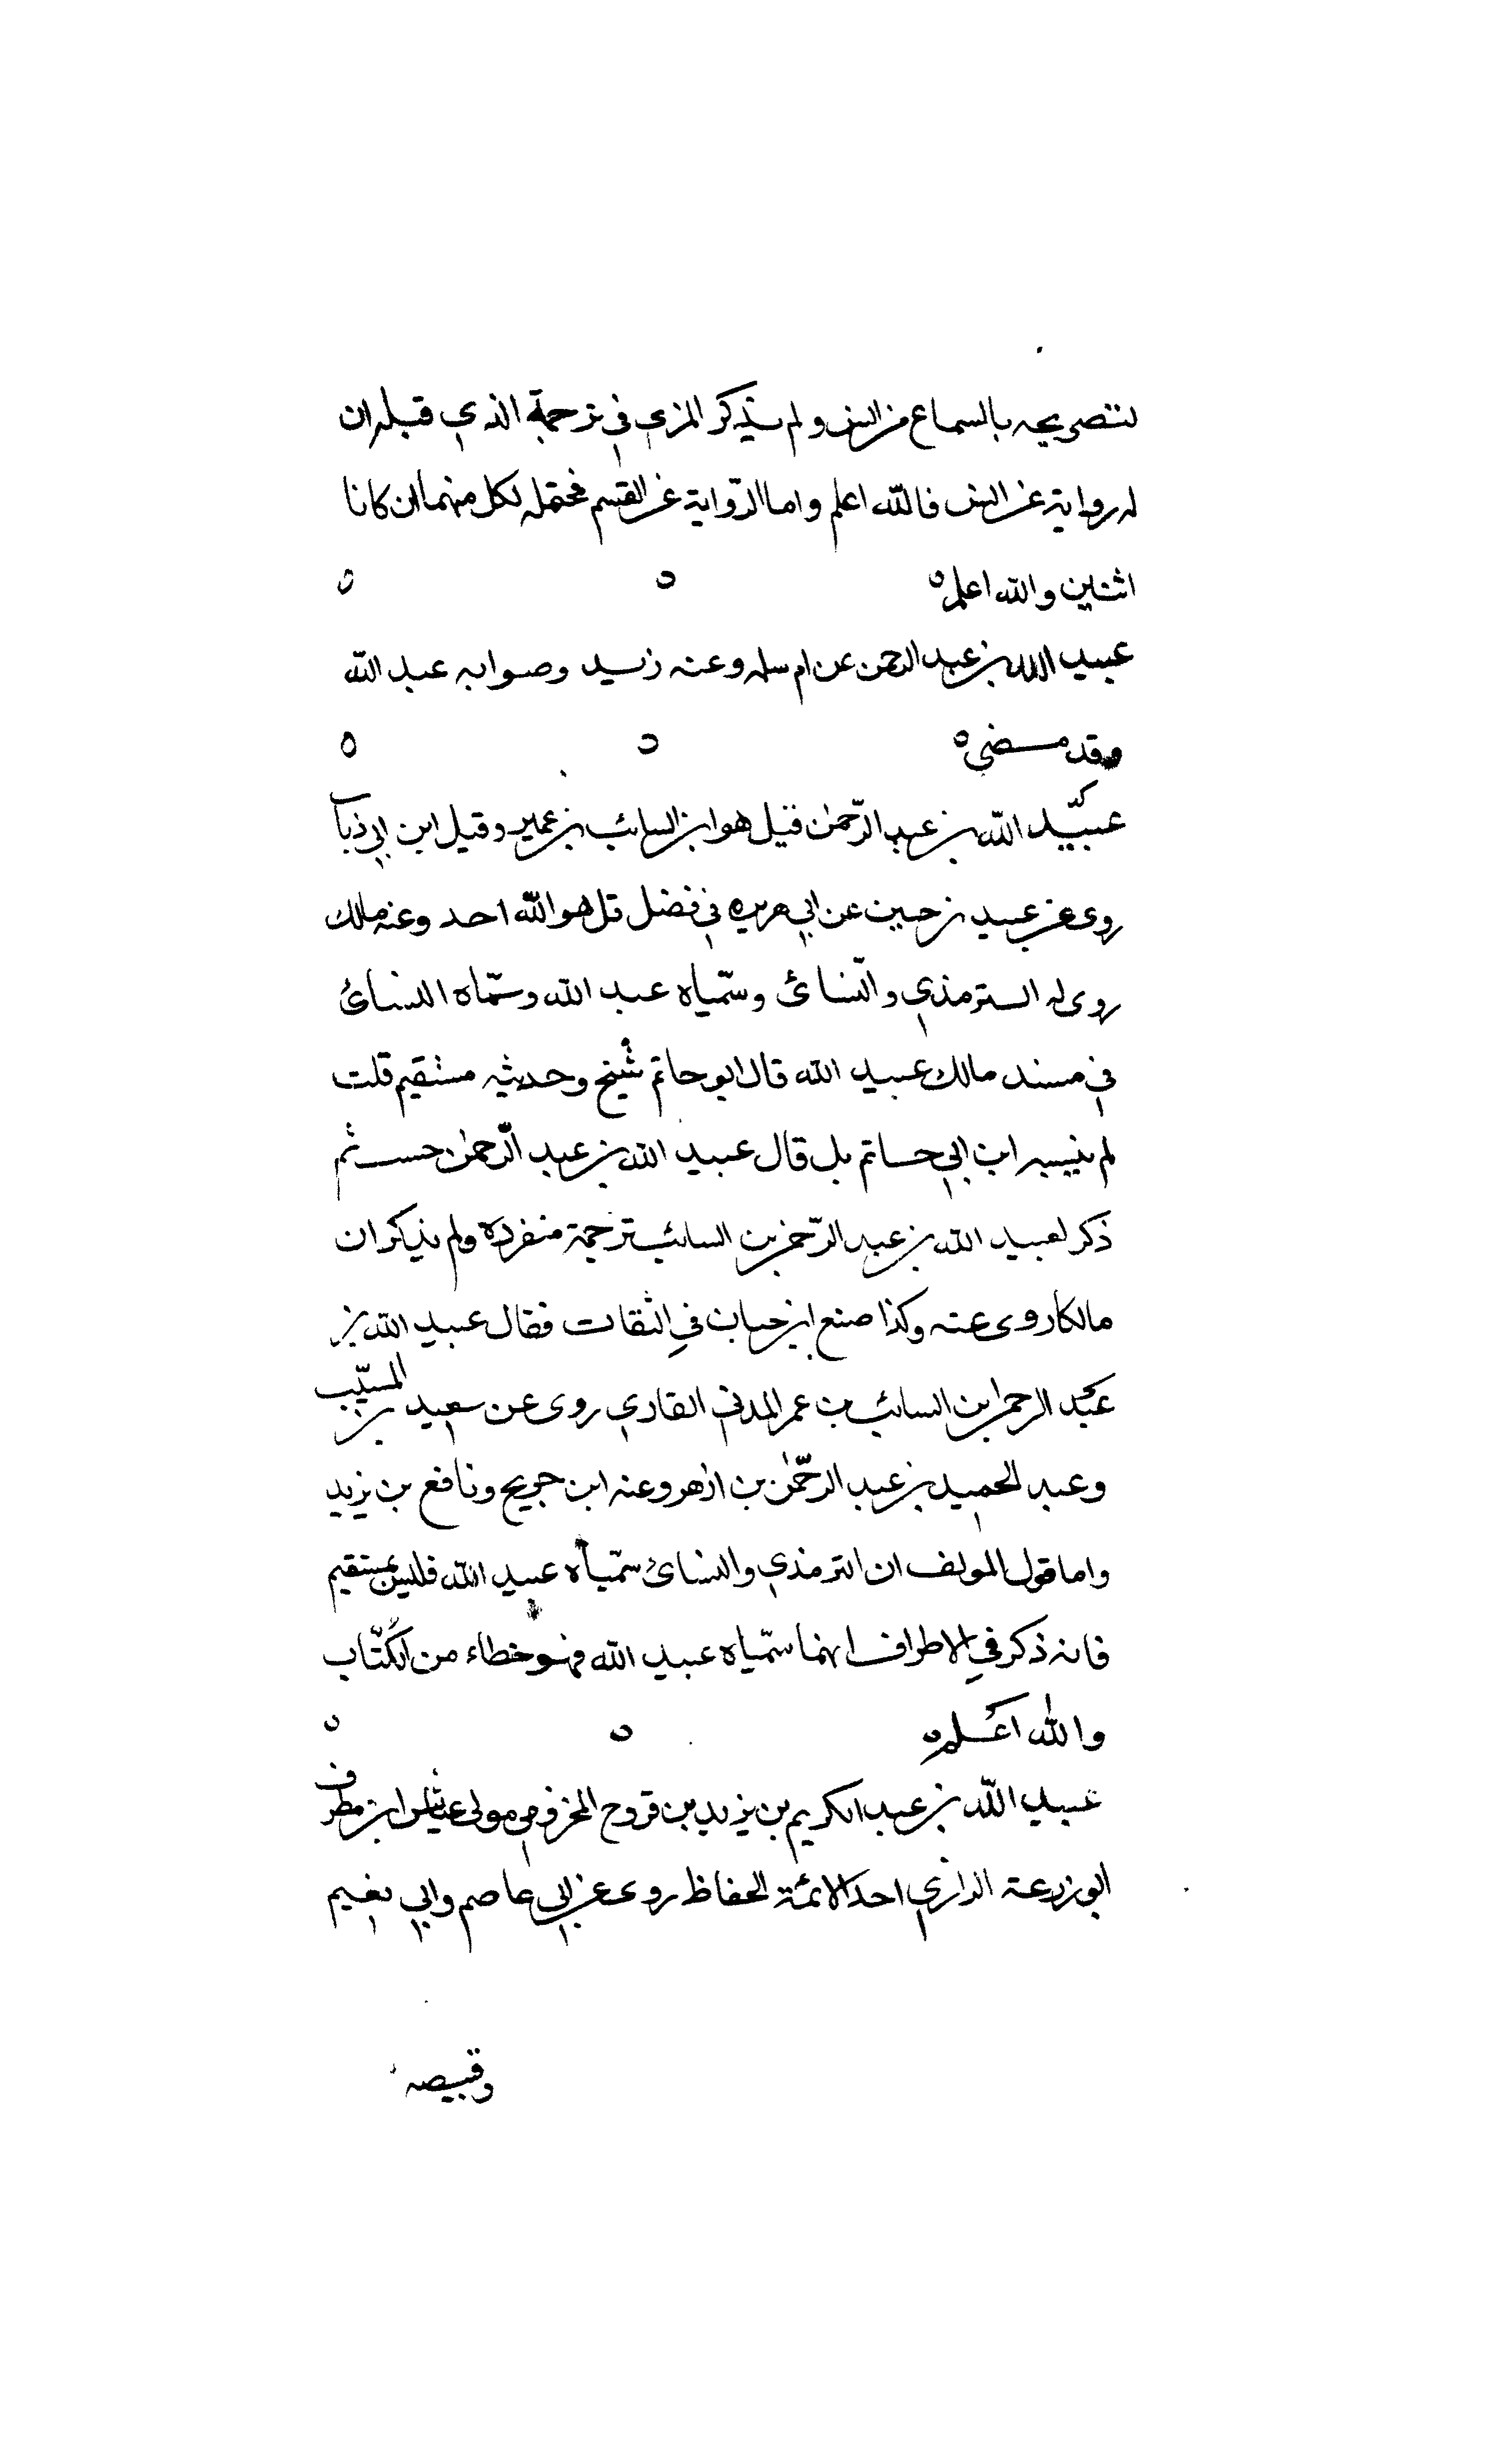 لتصريحه بالسماع من انس ولم يذكر المزي في ترجمة الذي قبله ان
له رواية عن انس فالله اعلم واما الرواية عن القسم فمحتمله لكل منهما ان كانا
اثنين والله اعلم ه ه ه
عبيد الله بن عبد الرحمن عن ام سلمه وعنه زبيد وصوابه عبد الله
وقد مضى ه ه ه
عبيد الله بن عبد الرحمن قيل هو ابن السائب بن عمير وقيل ابن ابي ذباب
روى عن عبيد بن حنين عن ابي هريره في فضل قل هو الله احد وعنه ملك
روى له الترمذي والنسائ وسمياه عبد الله وسماه النسائ
في مسند مالك عبيد الله قال ابو حاتم شيخ وحديثه مستقيم قلت
لم ينسبه ابن ابي حاتم بل قال عبيد الله بن عبد الرحمن حسب ثم
ذكر لعبيد الله بن عبد الرحمن بن السائب ترجمة منفردة ولم يذكر ان
مالكا روى عنه وكذا صنع ابن حبان في الثقات فقال عبيد الله بن
عبد الرحمن بن السائب بن عمر المدني القاري روى عن سعيد بن المسيب
وعبد الحميد بن عبد الرحمن بن ازهر وعنه ابن جريج ونافع بن يزيد
واما قول المولف ان الترمذي والنسائ سمياه عبيد الله فليس بمستقيم
فانه ذكر في الاطراف انهما سمياه عبيد الله فهو خطاء من الكتاب
والله اعلم ه ه ه
عبيد الله بن عبد الكريم بن يزيد بن فروخ المخزومي مولى عياش ابن مطرف
ابو زرعة الرازي احد الائمة الحفاظ روى عن ابي عاصم وابي نعيم
وقبيصه